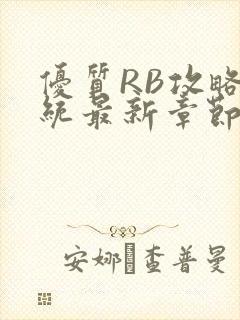 優質RB攻略
統最新章節
安娜·查普曼